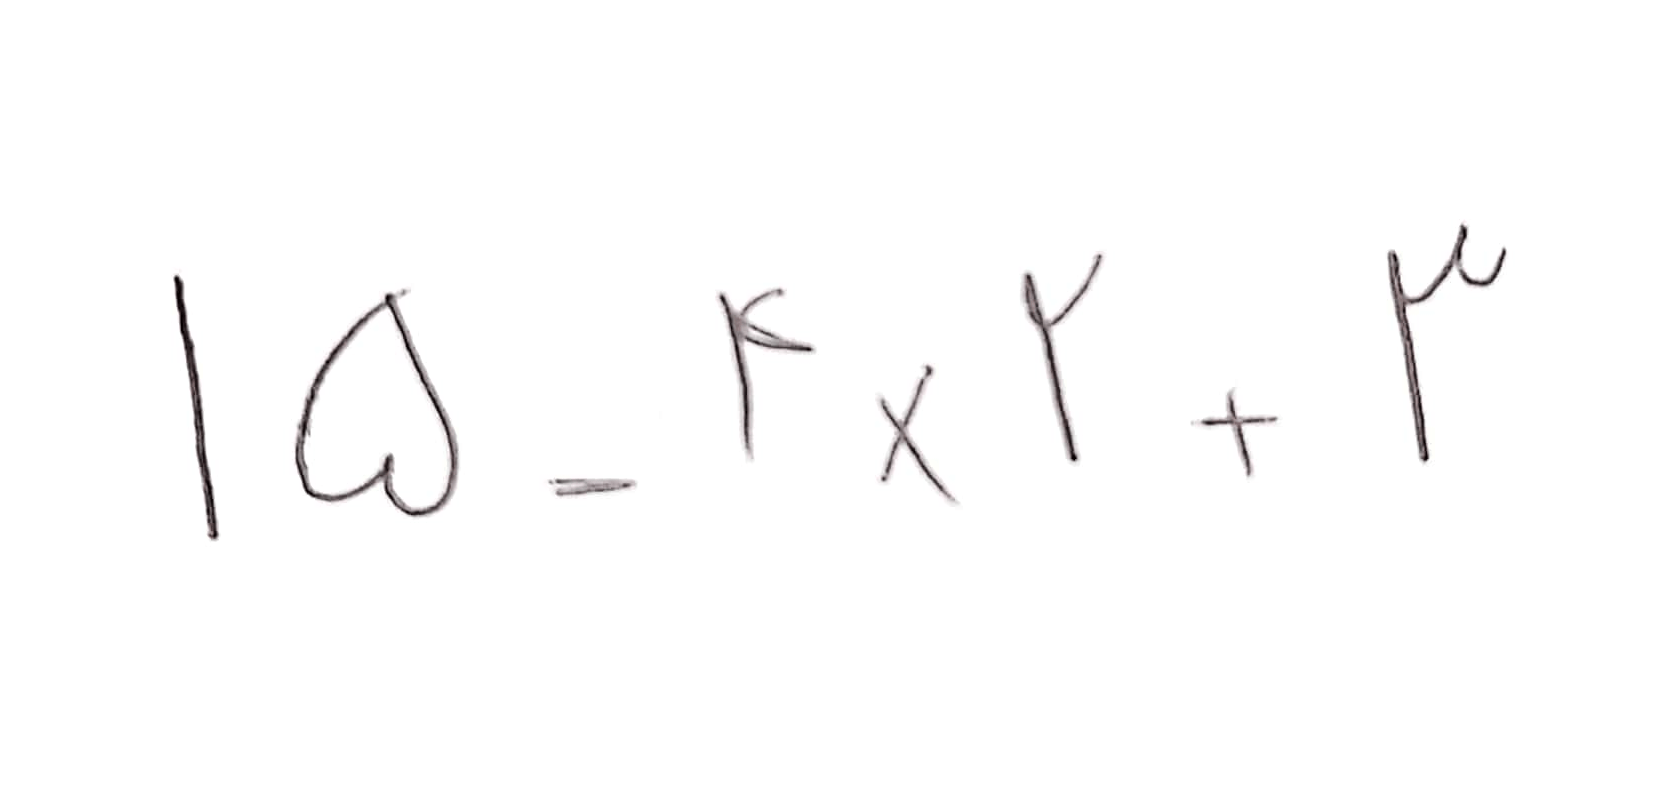 ۱۵ - ۴ × ۲ + ۳